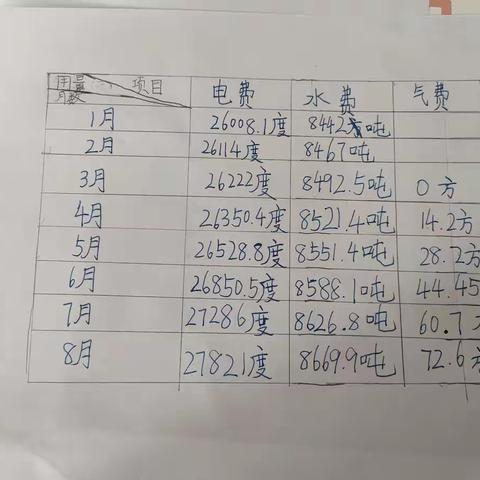 用量 项目 电费 水费 气费
月数
1月 26008.1度 8442吨
2月 26114度 8467吨
3月 26222度 8492.5吨 0方
4月 26350.4度 8521.4吨 14.2方
5月 26528.8度 8551.4吨 28.2方
6月 26850.5度 8588.1吨 44.45
7月 27286度 8626.8吨 60.7方
8月 27821度 8669.9吨 72.6方